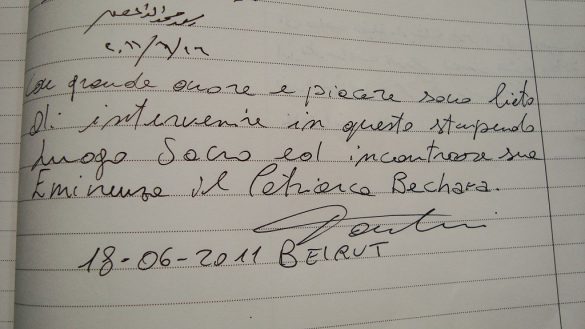 ٢٠١١/٦/١٦
Con grande onore e piacere sono lieto
di intervenire in questo stupendo
Luogo Sacro ed incontrare sua
Eminenza il Patriarca Bechara.
18-06-2011 BEIRUT